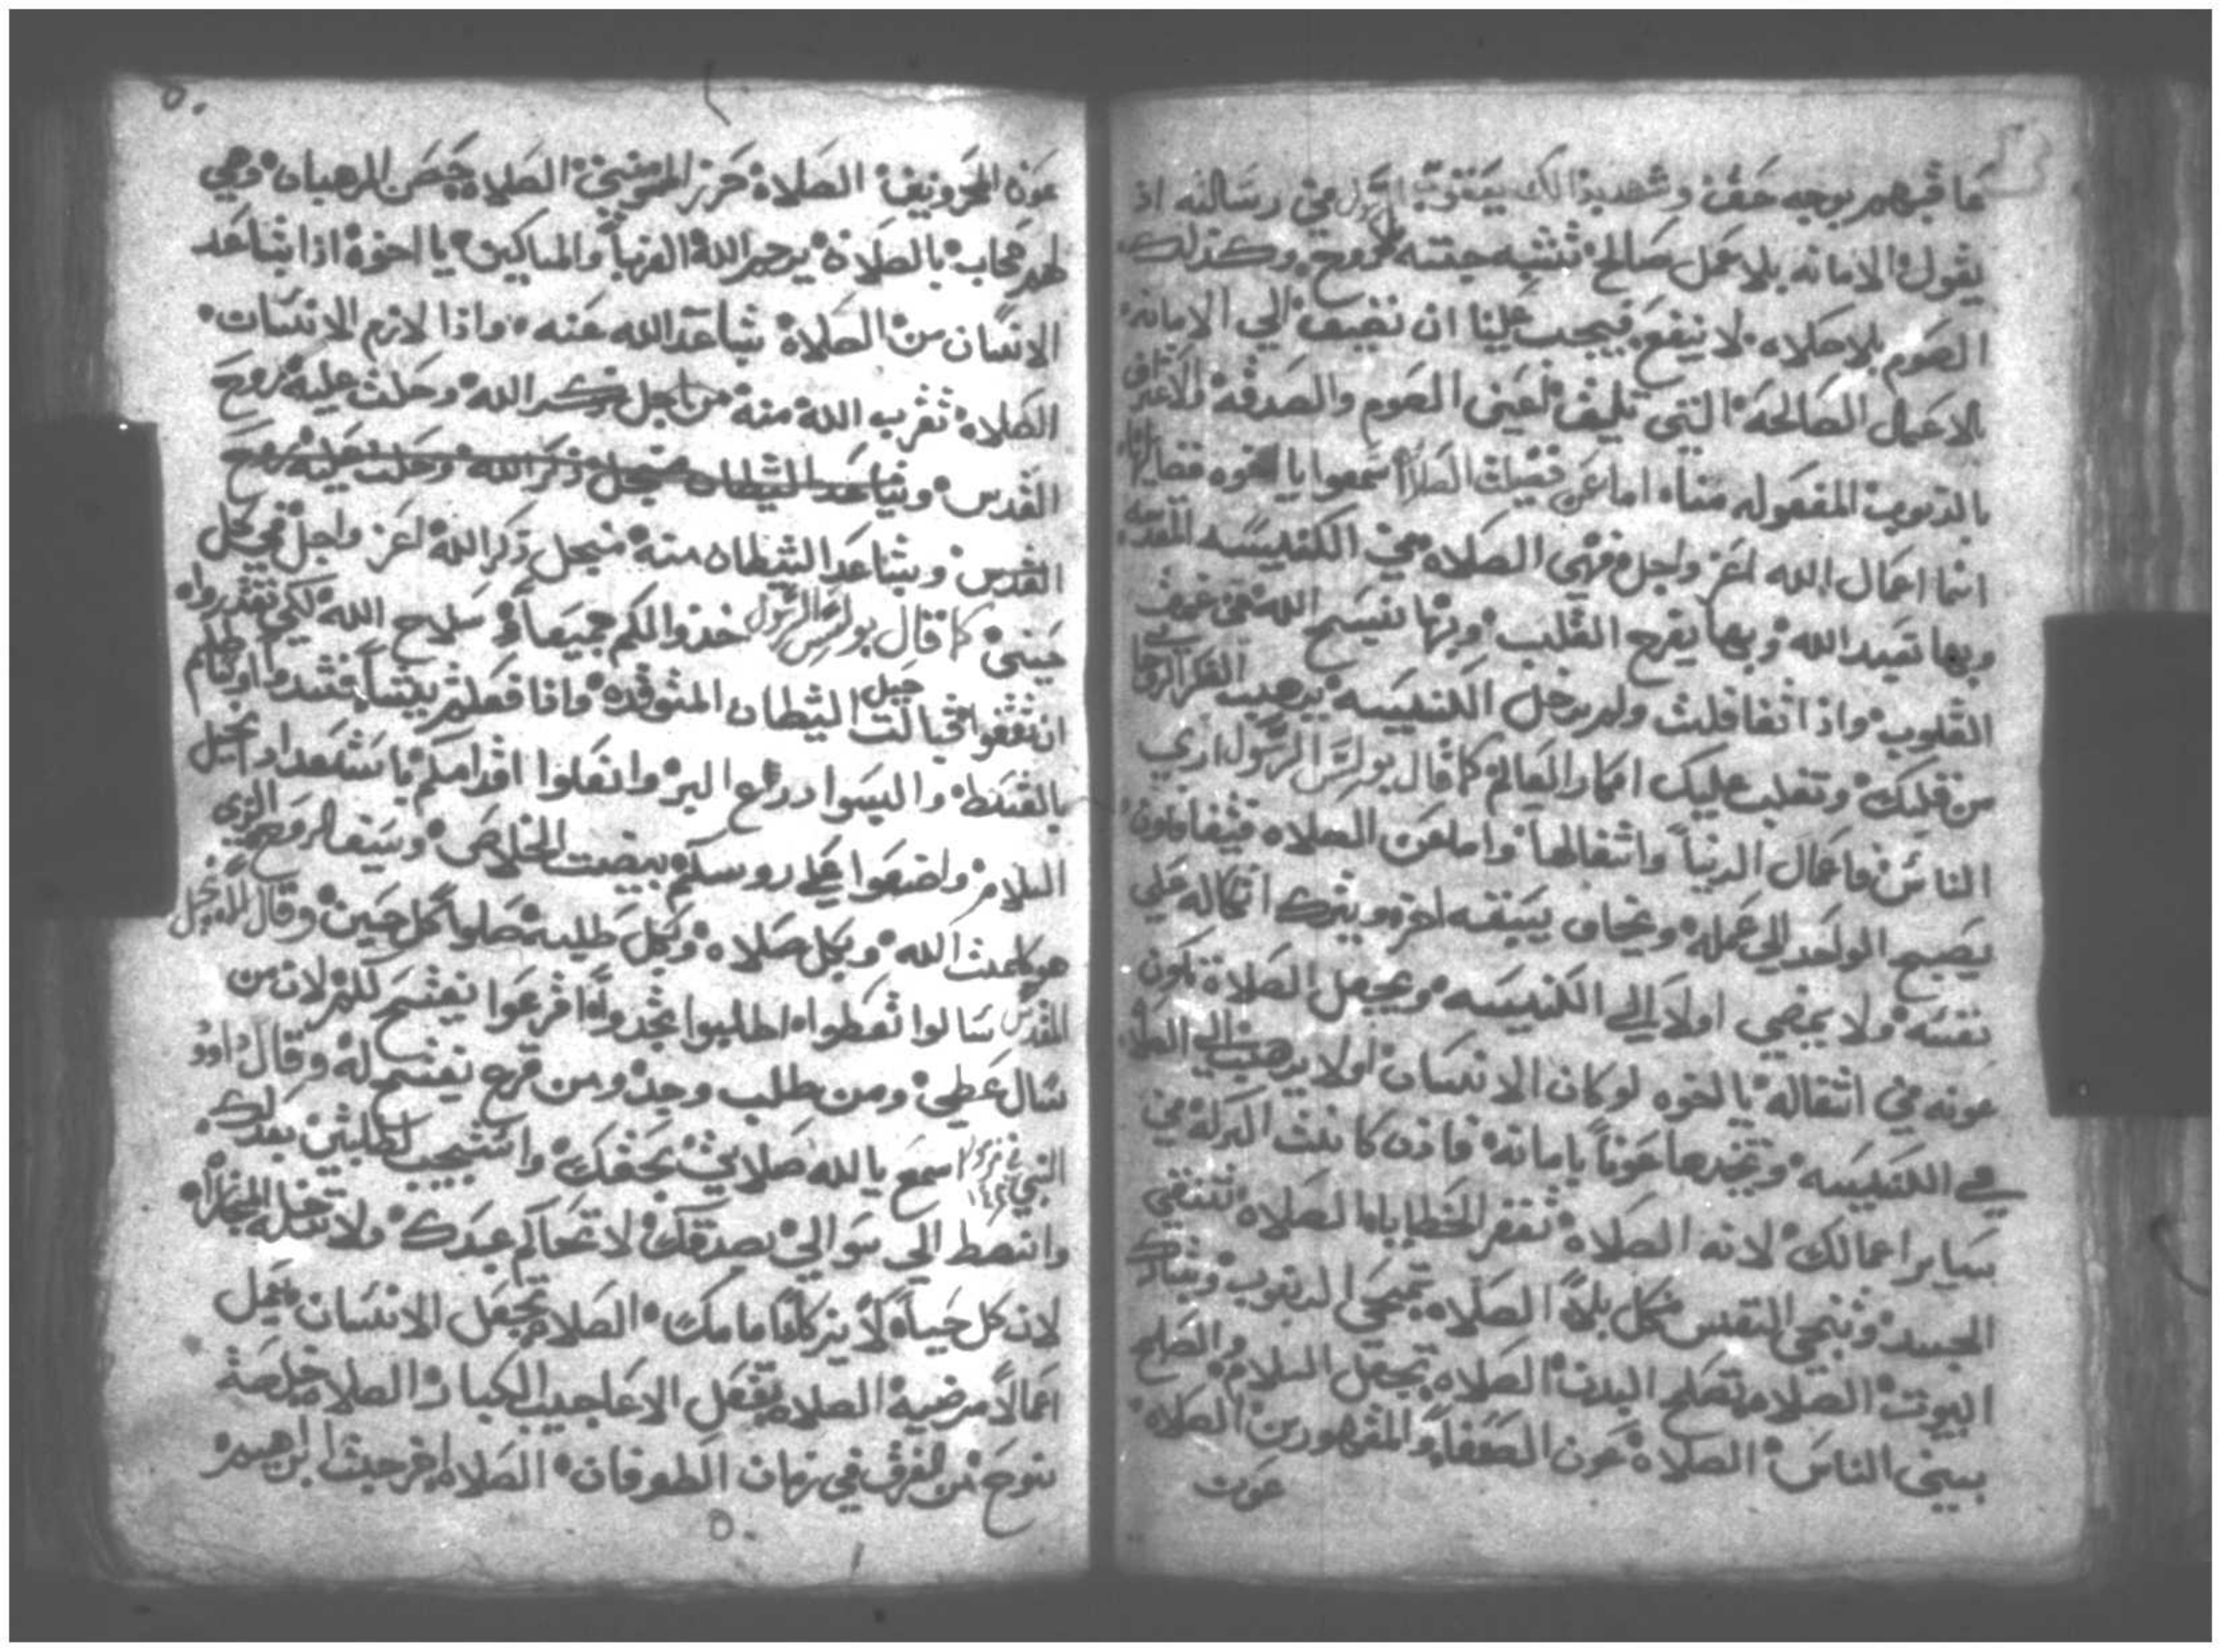 عاقبهم بوجه حق وشهد بذالك يعقوب الرسول في رسالته اذ
يقول الامانه بلا عمل صالح تشبه جتته بلا روح وكذلك
الصوم بلا صلاه لا ينفع فيجب علينا ان نضيف الي الامانه
الاعمال الصالحة التي تليق لعني الصوم والصدقة والاعتراف
بالدنوب المفعوله منا اما عن فضيلت الصلاه اسمعوا يا اخوه
انما اعمال الله اعز واجل فهي الصلاه في الكنيسه المقدسه
وبها تمجد الله وبها يفرح القلب وبها نسبح الله
القلوب واذا تغافلت ولم تدخل الكنيسه يذهب الفكر
من قلبك وتغلب عليك افكار العالم كما قال بولس الرسول اري
الناس فاعمال الدنيا واشغالها واما عن الصلاه فيتغافلون
يصبح الواحد الي عمله ويخاف يسبقه اخر ويترك اتكاله علي
نفسه ولا يمضي اولا الي الكنيسه ويجعل الصلاة تكون
عونه في اشغاله يا اخوه لو كان الانسان اولا يذهب الي الصلاه
في الكنيسه وتجدها عونا بامانه فاذن كانت البركه في
ساير اعمالك لانه الصلاة تغفر الخطايا الصلاه تنقي
الجسد وتنجي النفس من كل بلا الصلاه تمحي الدنوب وتبارك
البيوت الصلاه تصلح البدن الصلاه تجعل السلام والصلح
بين الناس الصلاة عون الضعفا والمقهورين الصلاه
عوت
٥٠
عون المحزونين الصلاة حرز المومنين الصلاه حصن الرهبان وهي
لهم حجاب بالصلاة يرحم الله الغربا والمساكين يا اخوة اذا تباعد
الانسان من الصلاة تباعد الله عنه واذا لازم الانسان
الصلاه تقرب الله منه من اجل ذكر الله وحلت عليه روح
القدس وتباعد الشيطان منجل ذكر الله وحلت عليه روح
القدس وتباعد الشيطان منه منجل ذكر الله اعز واجل في كل
حين كما قال بولس الرسول خذوا لكم جميعا سلاح الله لكي تقدروا
ان تقفوا قبالت حيل الشيطان المتوقده واذا فعلتم شيا فشدوا اوساطكم
بالقسط والبسوا درع البر وانعلوا اقدامكم باستعداد انجيل
السلام واضعوا علي روسكم بيضت الخلاص وسيف الروح الذي
هو كلمت الله وبكل صلاه وكل طلبه صلوا كل حين وقال الانجيل
المقدس سالوا تعطوا اطلبوا تجدوا اقرعوا يفتح لكم لان من
سال عطي ومن طلب وجد ومن قرع يفتح له وقال داوود
النبي في مزمور ١٤٢ اسمع يا الله صلاتي بحقك واستجيب لطلبتي بعدلك
وانصط الي سوالي بصدقك لا تحاكم عبدك ولا تدخله
لان كل حياه لا يزكا امامك الصلاه تجعل الانسان يعمل
اعمالا مرضيه الصلاه تفعل الاعاجيب الكبار الصلاه خلصة
نوح من الغرق في زمان الطوفان الصلاه اخرجت ابراهيم
٥٠